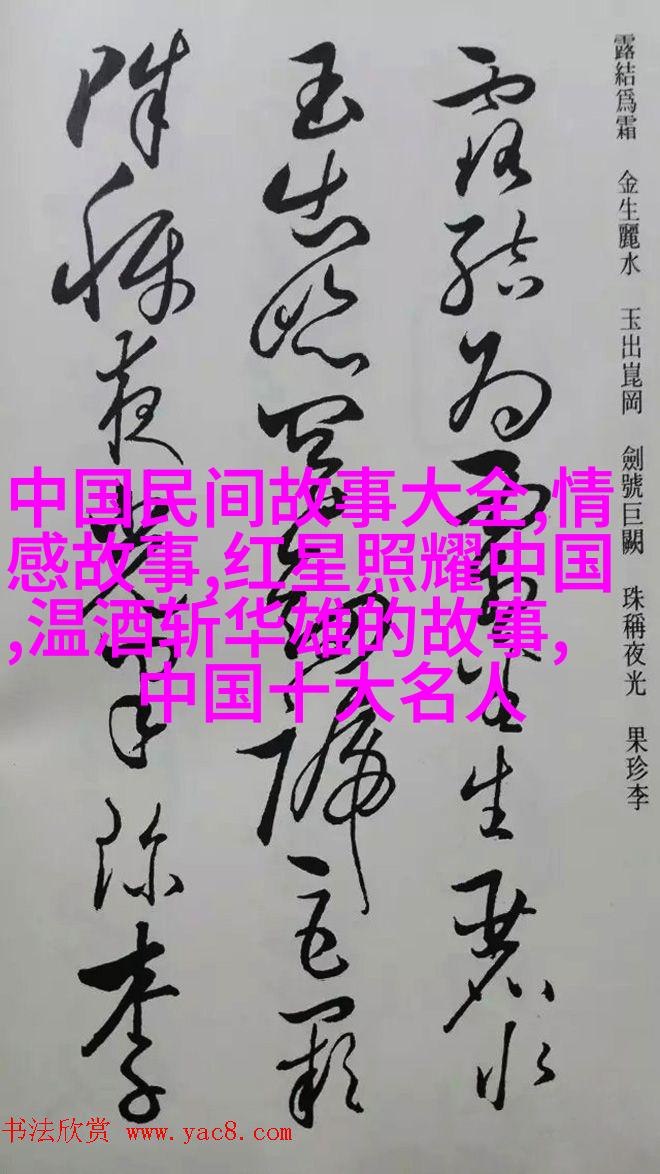 露結爲霜 金生麗水 玉出崑岡 劍號巨闕 珠稱夜光 果珍李
露結爲霜金生麗水
玉出崑岡劍號巨闕
珠稱夜光果珍李
中国民间故事大全,情
感故事,红星照耀中国
,温酒斩华雄的故事,
中国十大名人
书法欣赏 www.yac8.com